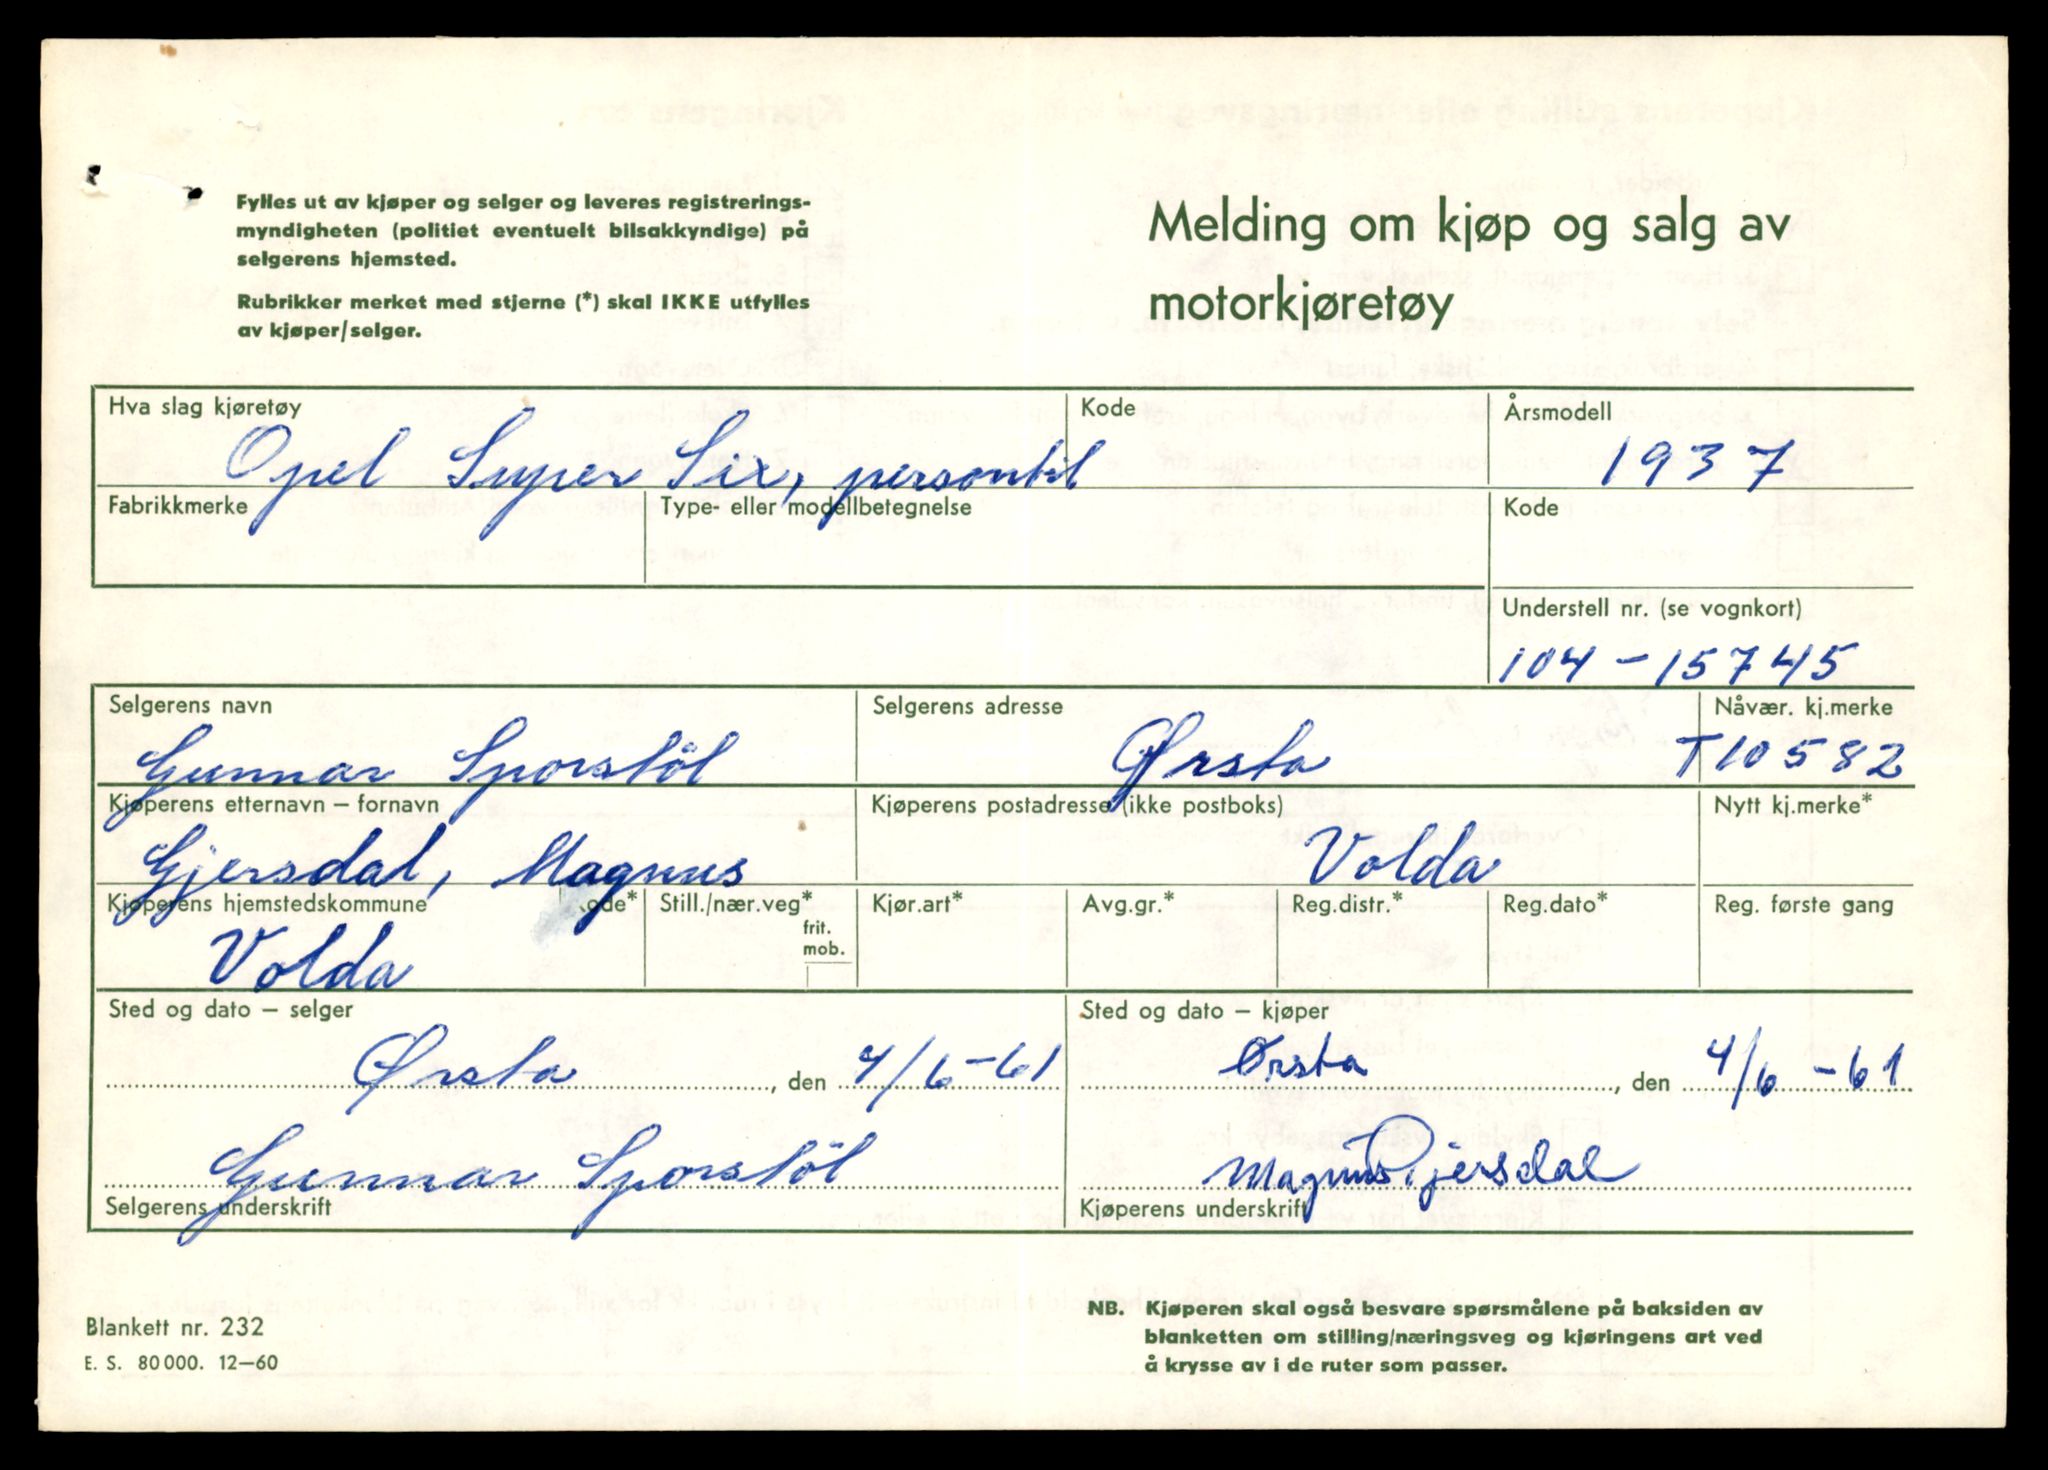 Fylles ut av kjøper og selger og leveres registrerings-
myndigheten (politiet eventuelt bilsakkyndige) på
selgerens hjemsted.
Rubrikker merket med stjerne (*) skal IKKE utfylles
av kjøper/selger.
Melding om kjøp og salg av
motorkjøretøy
Hva slag kjøretøy Kode Årsmodell
Opel Super Six, personbil 1937
Fabrikkmerke Type- eller modellbetegnelse Kode
Understell nr. (se vognkort)
104-15745
Selgerens navn Selgerens adresse Nåvær. kj.merke
Gunnar Sporstöl Ørsta T10582
Kjøperens etternavn – fornavn Kjøperens postadresse (ikke postboks) Nytt kj.merke*
Gjersdal, Magnus Volda
Kjøperens hjemstedskommune Kode* Still./nær.veg* Kjør.art* Avg.gr.* Reg.distr.* Reg.dato* Reg. første gang
frit.
mob.
Volda
Sted og dato – selger Sted og dato – kjøper
Ørsta, den 4/6-61 Ørsta, den 4/6-61
Gunnar Sporstöl Magnus Gjersdal
Selgerens underskrift Kjøperens underskrift
Blankett nr. 232
E. S. 80000. 12–60
NB. Kjøperen skal også besvare spørsmålene på baksiden av
blanketten om stilling/næringsveg og kjøringens art ved
å krysse av i de ruter som passer.